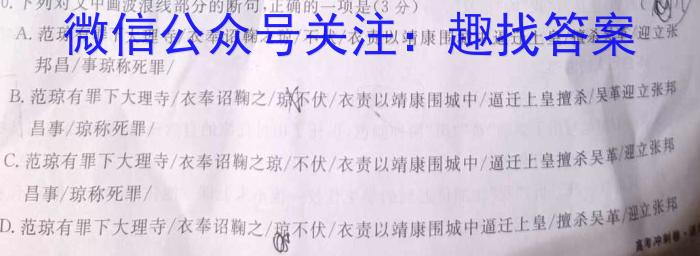 0.下列对文中画波浪线部分的断句,正确的一项是(3分)
微信公众号关注:趣找答案
A.范琼有罪下大理寺/衣奉诏鞫之琼/不伏/衣责以靖康围城中/逼迁上皇擅杀吴革/迎立张
邦昌/事琼称死罪/
B.范琼有罪下大理寺/衣奉诏鞫之/琼不伏/衣责以靖康围城中/逼迁上皇擅杀/吴革迎立张邦
昌事/琼称死罪/
C.范琼有罪下大理寺/衣奉诏鞫之琼/不伏/衣责以靖康围城中/逼迁上皇/擅杀吴革/迎立张邦
昌事/琼称死罪/
D.范琼有罪下大理寺/衣奉诏鞫之/琼不伏/衣责以靖康围城中逼迁上皇/擅杀吴革/迎立张邦
高考冲刺卷